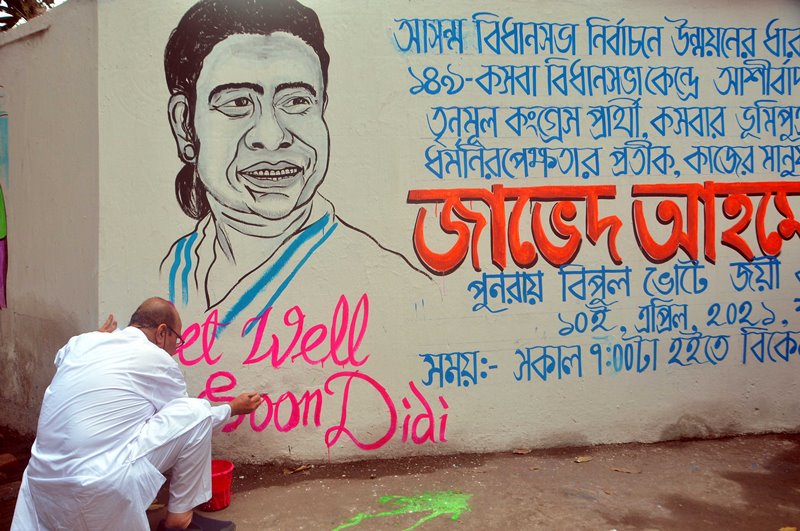 আসন্ন বিধানসভা নির্বাচনে উন্নয়নের
১৪৯-কসবা বিধানসভা কেন্দ্রে
তৃনমূল কংগ্রেস প্রার্থী, কসবার
ধর্মনিরপেক্ষতার প্রতীক, কাজের মানুষ
জাভেদ
পুনরায় বিপুল ভোটে জয়ী
১০ই, এপ্রিল, ২০২১,
সময়:- সকাল ৭:00টা হইতে
Get Well
Soon Didi